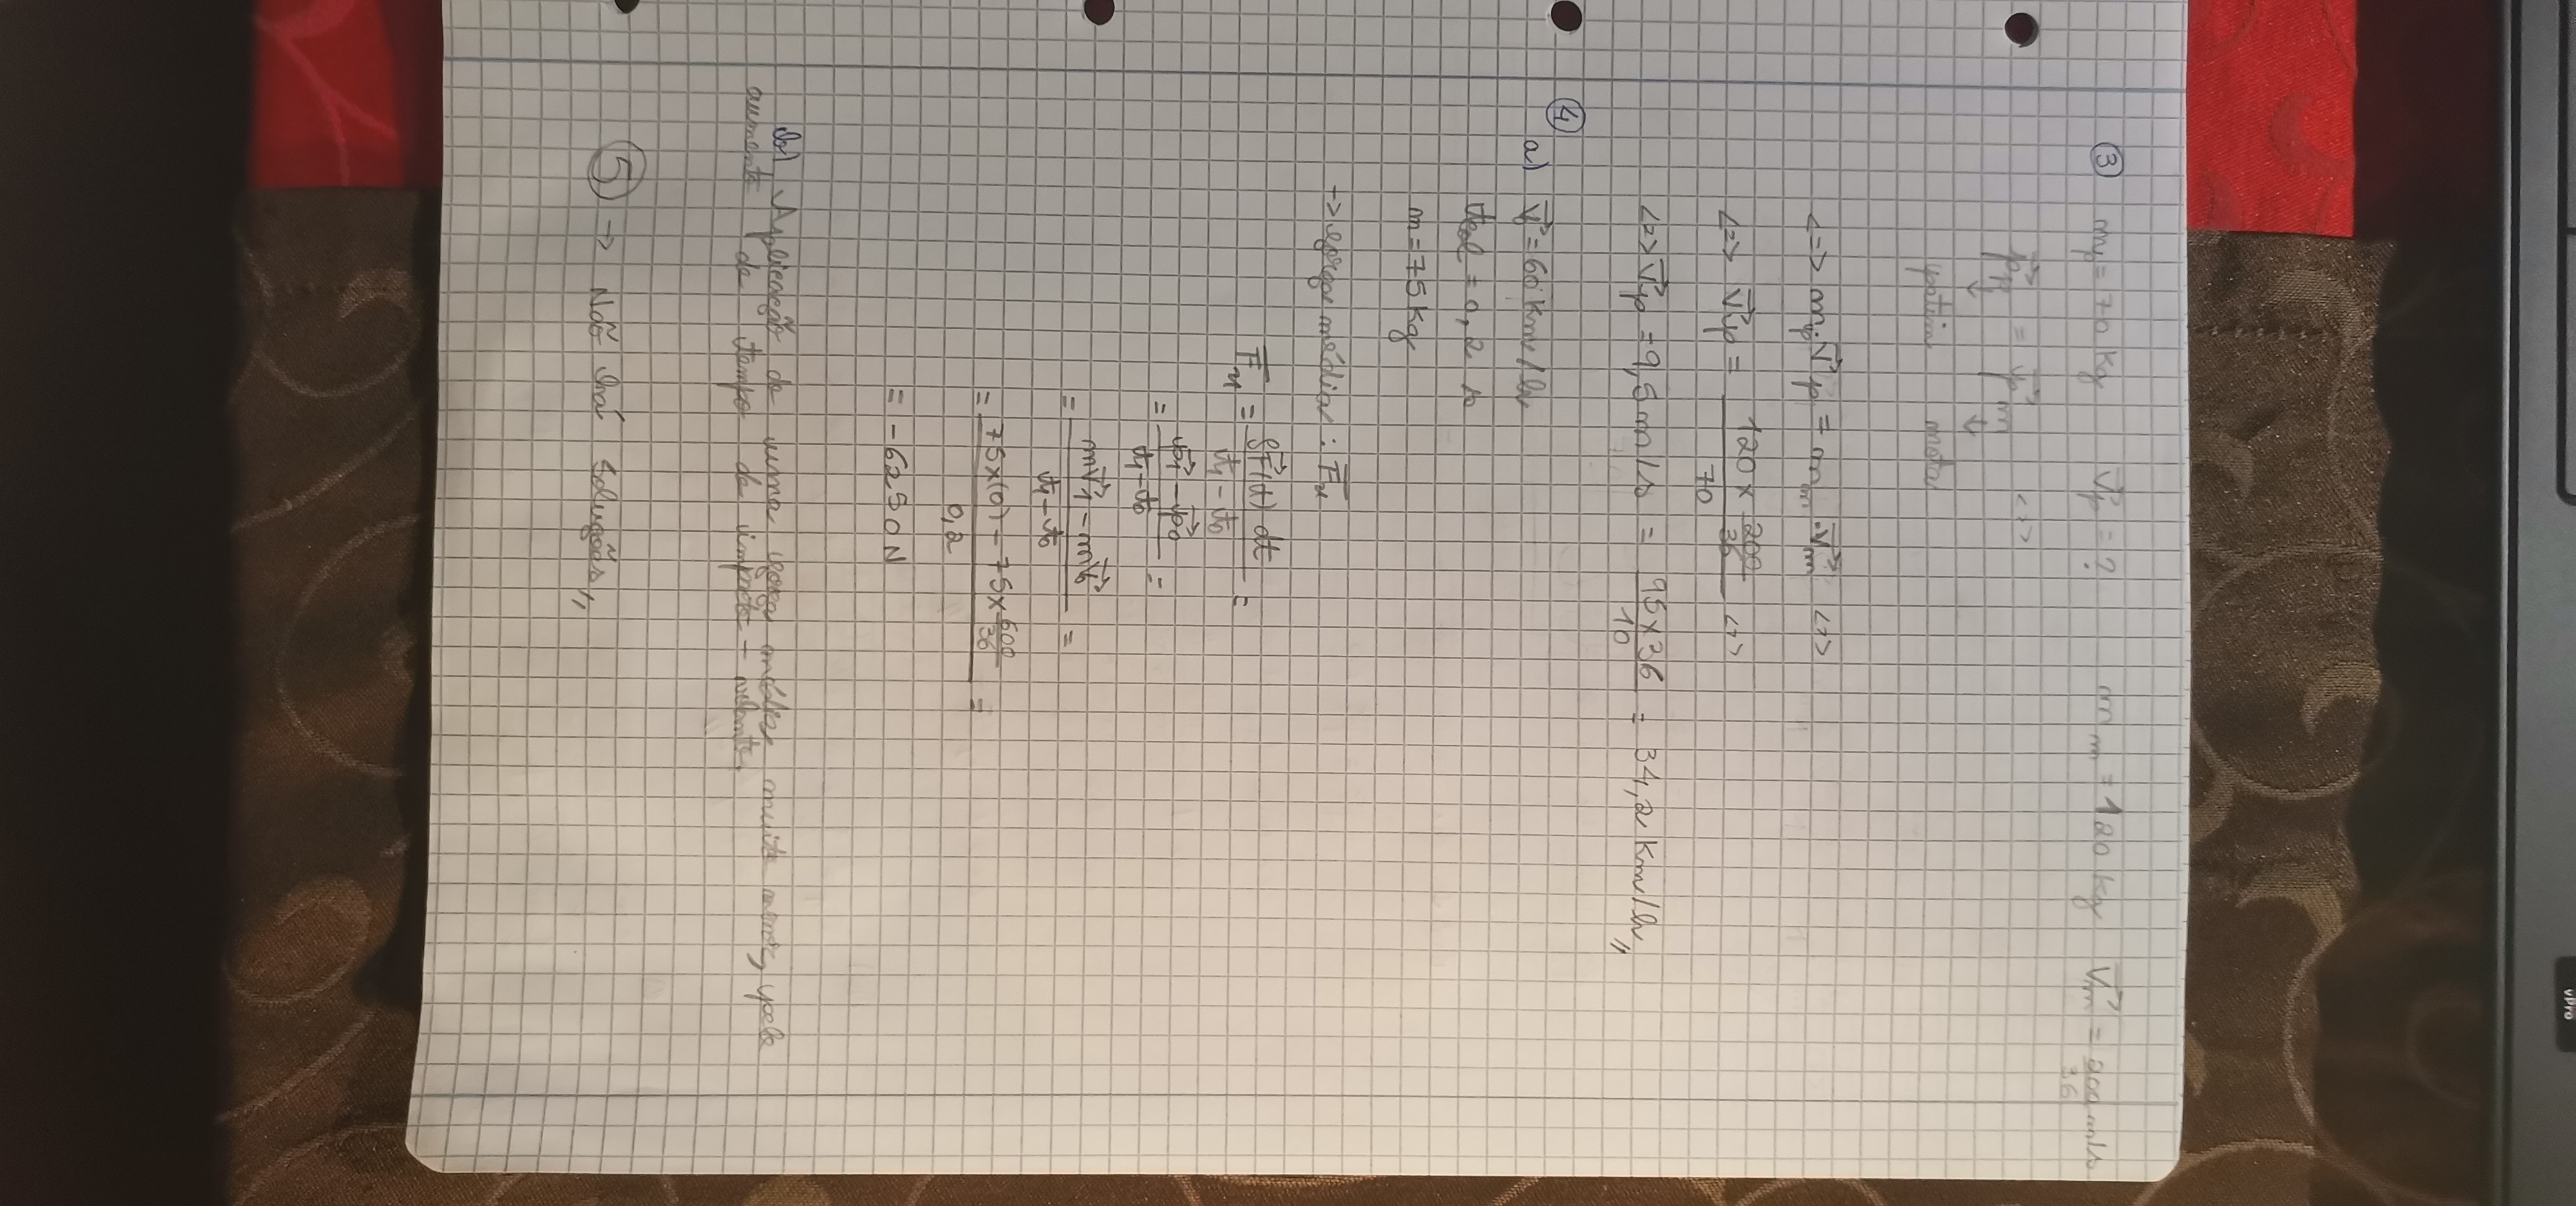 ③ mp = 70 kg v⃗p = ? m m = 120 kg v⃗m = 200/36 m/s
p⃗p = p⃗m <=>
↓ ↓
patim mota
<=> mp v⃗p = mm . v⃗m <=>
<=> v⃗p = (120 x 200/36)/70 <=>
<=> v⃗p = 9,5 m/s = (95 x 36)/10 = 34,2 km/h,,
④
a) v⃗ = 60 km/h
tcol = 0,2 s
m = 75 kg
-> força média : F̅x
F̅x = (∫F⃗(t) dt)/(t1 - t0) =
= (p⃗1 - p⃗0)/(t1 - t0) =
= (mv⃗1 - mv⃗0)/(t1 - t0) =
= (75x(0) - 75x600/36)/0,2 =
= -6250N
b) Aplicação de uma força média muito menor, pelo
aumento de tempo de impacto -
⑤ -> Não há Soluções,,
vPro